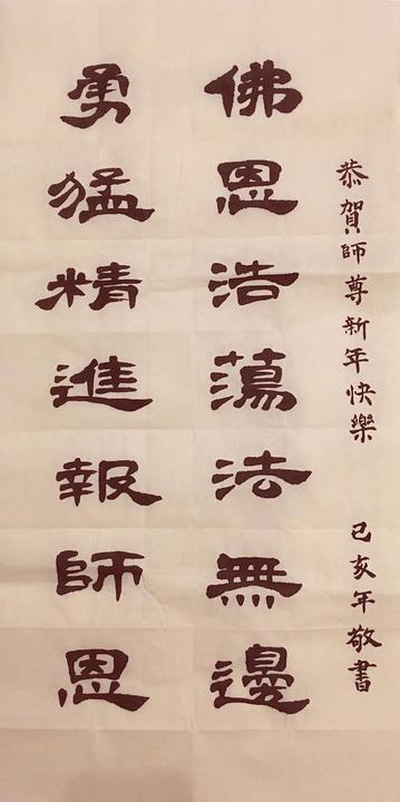 恭賀師尊新年快樂 己亥年敬書
佛恩浩蕩法無邊
勇猛精進報師恩